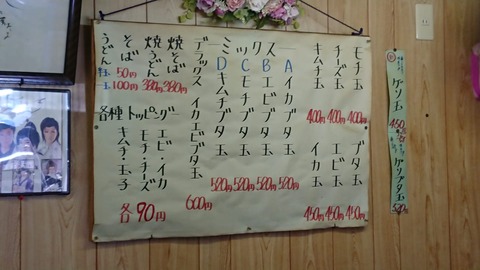 モチ玉
チーズ玉
キムチ玉
400円
400円
400円
ブタ玉
エビ玉
イカ玉
450円
450円
450円
ミックス
A イカブタ玉
B エビブタ玉
C モチブタ玉
D キムチブタ玉
520円
520円
520円
520円
デラックス イカエビブタ玉
600円
焼そば
380円
焼うどん
380円
そば
うどん
半玉 50円
一玉 100円
各種トッピング
エビ・イカ
モチ・チーズ
キムチ・玉子
各90円
ゲソ玉
450円
ゲソブタ玉
520円